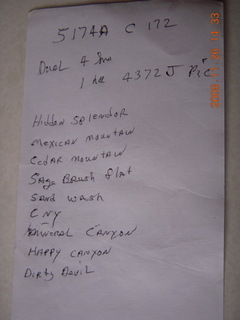 5174A C 172
Dual 4 hrs
1 hr 4372J PIC
Hidden Splendor
Mexican Mountain
Cedar Mountain
Sage Brush flat
Sand wash
CNY
Mineral Canyon
Happy Canyon
Dirty Devil